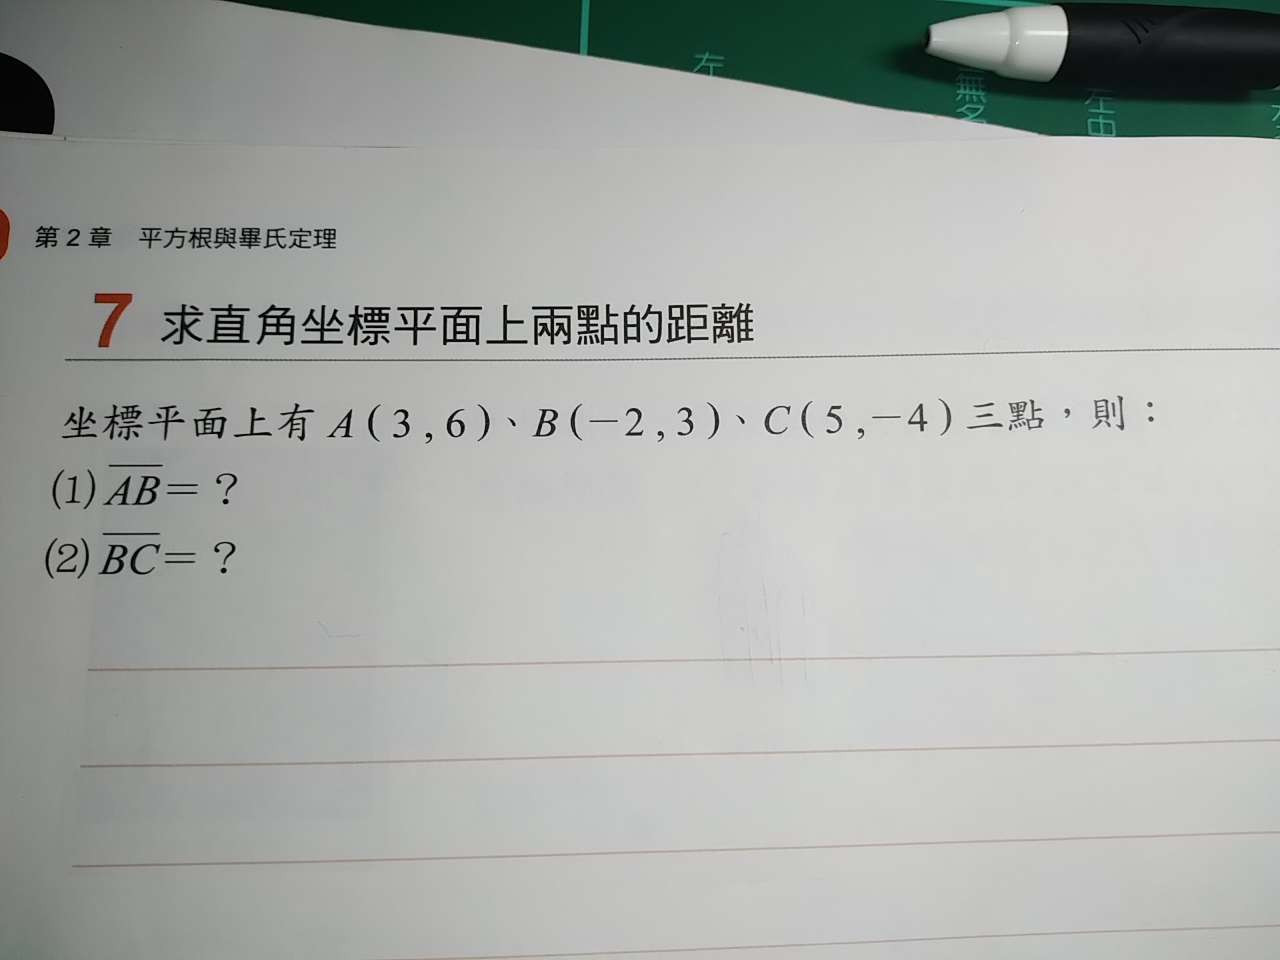 左
無名
左中
第 2 章 平方根與畢氏定理
7 求直角坐標平面上兩點的距離
坐標平面上有 A ( 3 , 6 )、B (－2 , 3 )、C ( 5 ,－4 ) 三點，則：
(1) AB＝？
(2) BC＝？